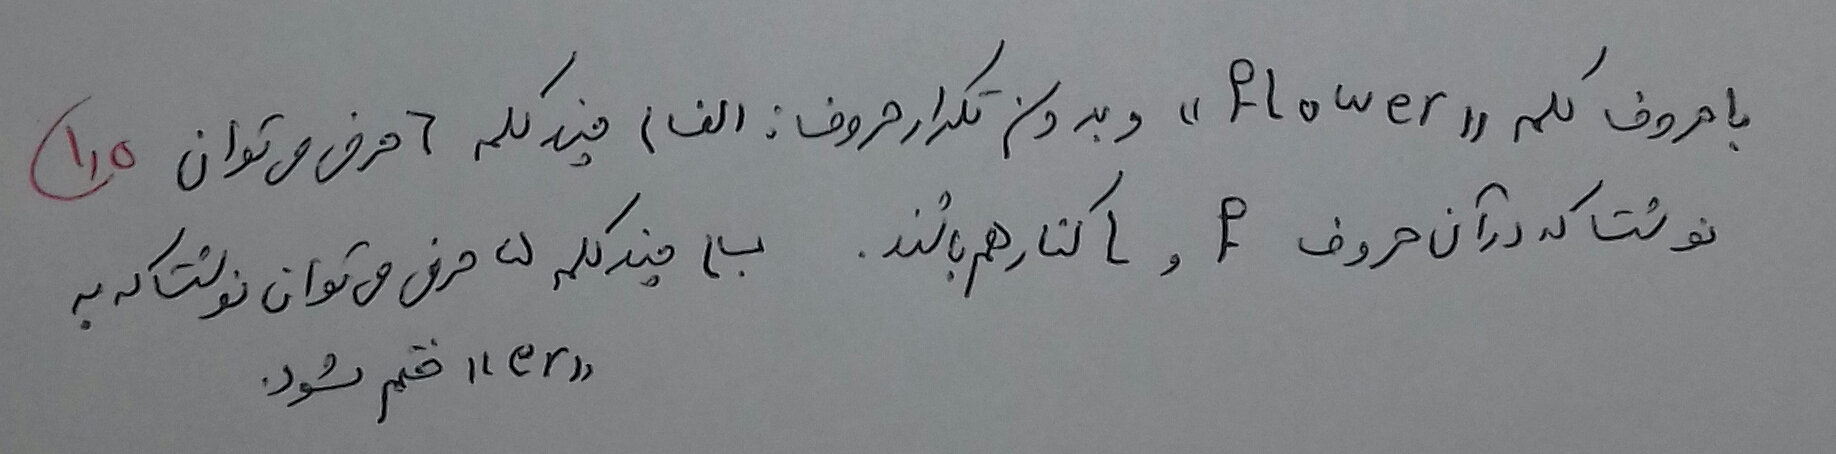 با حروف کلمه «Flower» و بدون تکرار حروف: الف) چند کلمه ۶ حرفی می‌توان ۱٫۵
نوشت که در آن حروف F و l کنار هم باشند. ب) چند کلمه ۵ حرفی می‌توان نوشت که به
«er» ختم شود.